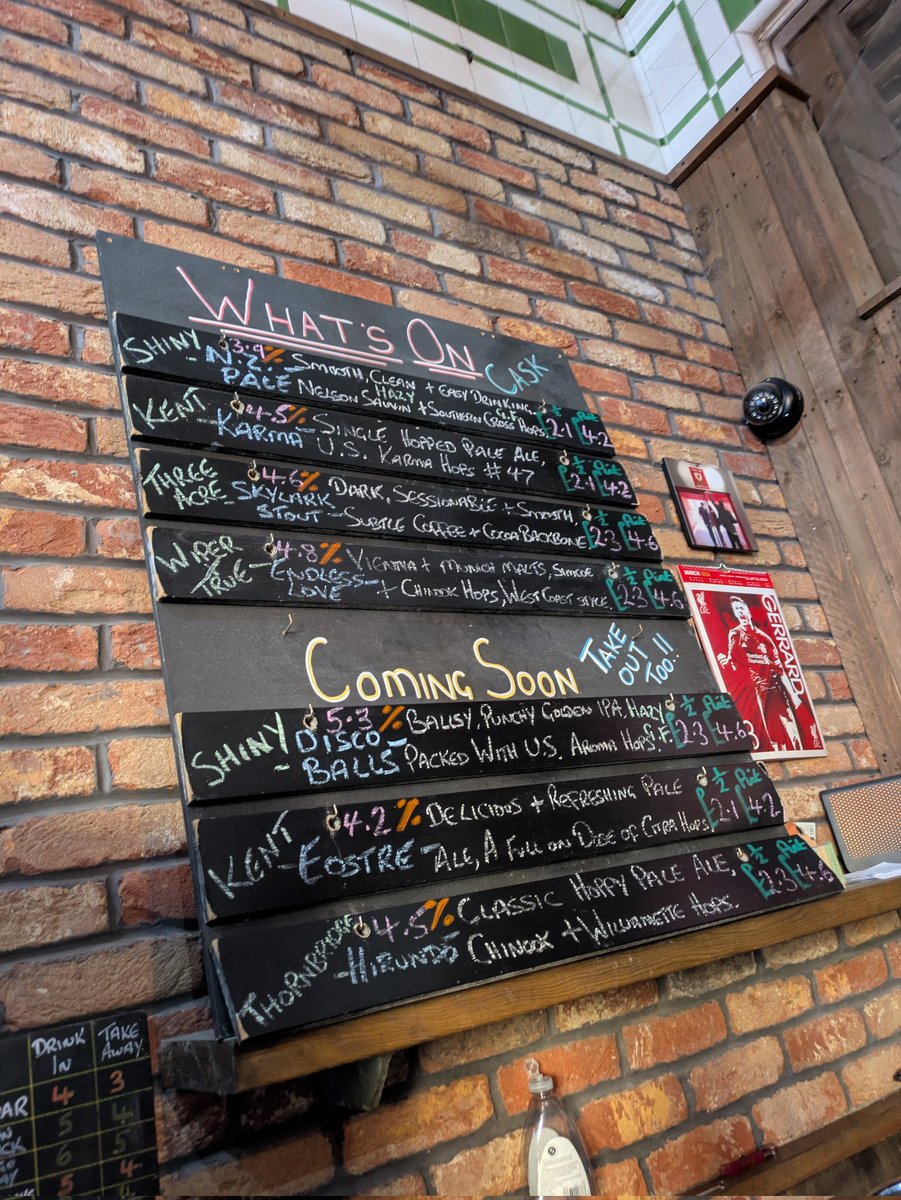 WHAT'S ON
CASK
SHINY - N.Z. PALE 3.9% SMOOTH, CLEAN + EASY DRINKING,
NELSON SAUVIN + SOUTHERN CROSS HOPS, HAZY G.F.
½ Pint
£2.1 £4.2
KENT - KARMA 4.5% - SINGLE HOPPED PALE ALE,
U.S. KARMA HOPS #47
½ Pint
£2.1 £4.2
THREE ACRE SKYLARK STOUT 4.6% DARK, SESSIONABLE + SMOOTH,
SUBTLE COFFEE + COCOA BACKBONE
½ Pint
£2.3 £4.6
WIPER TRUE - ENDLESS LOVE 4.8% VIENNA + MUNICH MALTS, SIMCOE
+ CHINOOK HOPS, WEST COAST STYLE,
½ Pint
£2.3 £4.6
COMING SOON
TAKE
OUT
TOO!!
SHINY - DISCO BALLS 5.3% BALLSY, PUNCHY GOLDEN IPA, HAZY
PACKED WITH U.S. AROMA HOPS. G.F.
½ Pint
£2.3 £4.6
KENT - EOSTRE - 4.2% DELICIOUS + REFRESHING PALE
ALE, A FULL ON DOSE OF CITRA HOPS.
½ Pint
£2.1 £4.2
THORNBRIDGE - HIRUNDO 4.5% CLASSIC HOPPY PALE ALE,
CHINOOK + WILLIAMETTE HOPS.
½ Pint
£2.3 £4.6
MARCH
GERRARD
DRINK IN TAKE AWAY
4 3
5 4
6 5
5 4